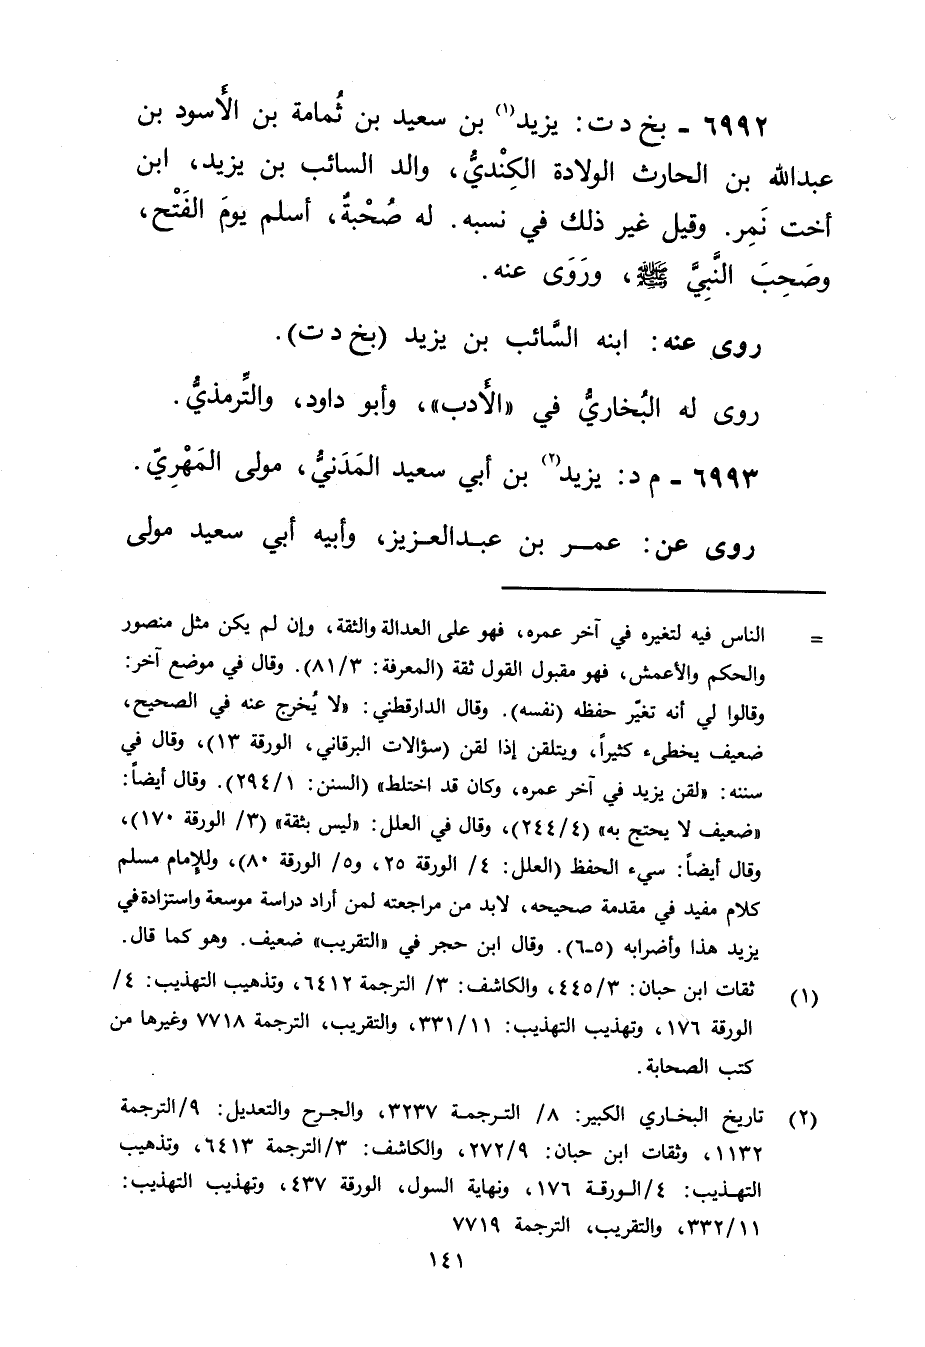 ٦٩٩٢ - بخ د ت: يزيد(١) بن سعيد بن ثُمامة بن الأَسود بن
عبدالله بن الحارث الولادة الكِنْديُّ، والد السائب بن يزيد، ابن
أخت نَمِر. وقيل غير ذلك في نسبه. له صُحْبةٌ، أسلم يومَ الفَتْح،
وصَحِبَ النَّبِيَّ ﷺ، ورَوَى عنه.
روى عنه: ابنه السَّائب بن يزيد (بخ د ت).
روى له البُخاريُّ في «الأَدب»، وأبو داود، والتِّرمذيُّ.
٦٩٩٣ - م د: يزيد(٢) بن أبي سعيد المَدَنيُّ، مولى المَهْرِيّ.
روى عن: عمـر بن عبـدالعـزيز، وأبيه أبي سعيد مولى
= الناس فيه لتغيره في آخر عمره، فهو على العدالة والثقة، وإن لم يكن مثل منصور
والحكم والأعمش، فهو مقبول القول ثقة (المعرفة: ٨١/٣). وقال في موضع آخر:
وقالوا لي أنه تغيّر حفظه (نفسه). وقال الدارقطني: «لا يُخرج عنه في الصحيح،
ضعيف يخطىء كثيراً، ويتلقن إذا لقن (سؤالات البرقاني، الورقة ١٣)، وقال في
سننه: «لقن يزيد في آخر عمره، وكان قد اختلط» (السنن: ٢٩٤/١). وقال أيضاً:
«ضعيف لا يحتج به» (٢٤٤/٤)، وقال في العلل: «ليس بثقة» (٣/ الورقة ١٧٠)،
وقال أيضاً: سيء الحفظ (العلل: ٤/ الورقة ٢٥، و٥/ الورقة ٨٠)، وللإمام مسلم
كلام مفيد في مقدمة صحيحه، لابد من مراجعته لمن أراد دراسة موسعة واستزادة في
يزيد هذا وأضرابه (٥-٦). وقال ابن حجر في «التقريب» ضعيف. وهو كما قال.
(١) ثقات ابن حبان: ٤٤٥/٣، والكاشف: ٣/ الترجمة ٦٤١٢، وتذهيب التهذيب: ٤/
الورقة ١٧٦، وتهذيب التهذيب: ٣٣١/١١، والتقريب، الترجمة ٧٧١٨ وغيرها من
كتب الصحابة.
(٢) تاريخ البخاري الكبير: ٨/ التـرجمـة ٣٢٣٧، والجرح والتعديل: ٩/الترجمة
١١٣٢، وثقات ابن حبان: ٢٧٢/٩، والكاشف: ٣/الترجمة ٦٤١٣، وتذهيب
التهـذيب: ٤/الـورقـة ١٧٦، ونهاية السول، الورقة ٤٣٧، وتهذيب التهذيب:
٣٣٢/١١، والتقريب، الترجمة ٧٧١٩
١٤١